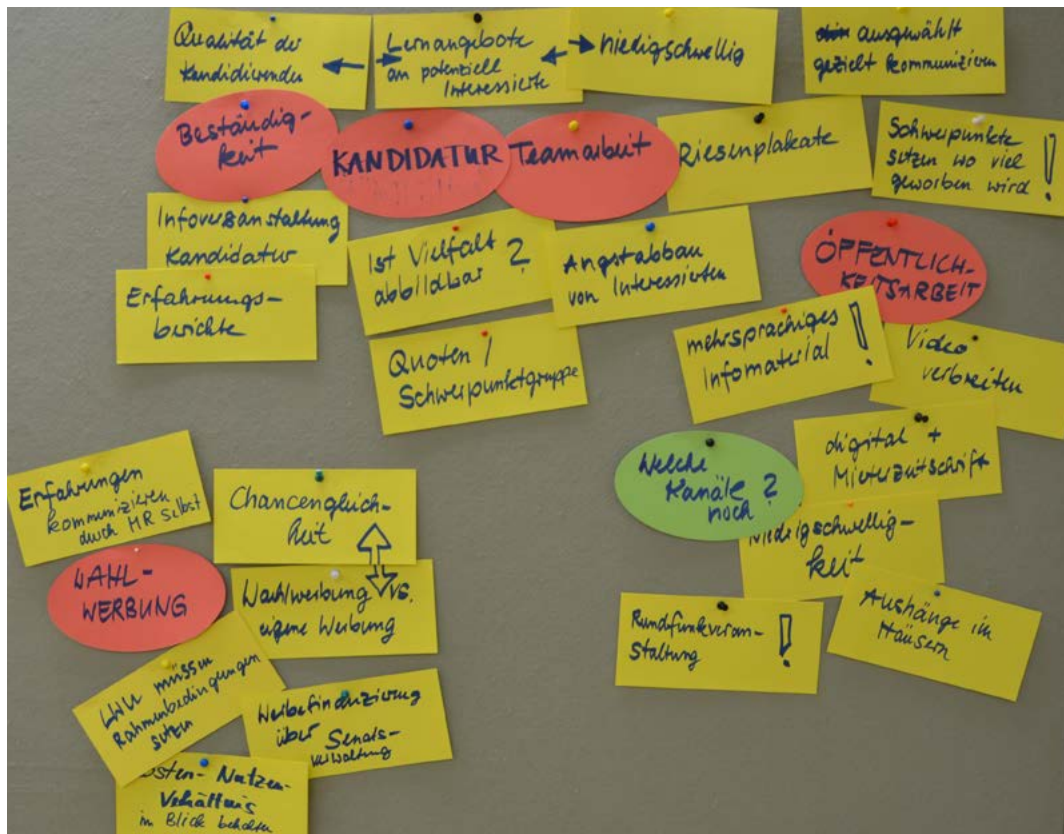 Qualität der
Kandidierenden
Lernangebote
an potenziell
Interessierte
niedigschwellig
ausgewählt
gezielt kommunizieren
Beständig-
keit
KANDIDATUR
Teamarbeit
Riesenplakate
Schwerpunkte
setzen wo viel
geworben wird!
Infoveranstaltung
Kandidatur
Erfahrungs-
berichte
Ist Vielfalt
abbildbar?
Angstabbau
von Interessierten
Quoten /
Schwerpunktgruppe
ÖFFENTLICH-
KEITSARBEIT
mehrsprachiges
Infomaterial!
Video
verbreiten
digital +
Mieterzeitschrift
Welche
Kanäle?
noch
Niedrigschwellig-
keit
Rundfunkveran-
staltung!
Aushänge in
Häusern
Erfahrungen
kommunizieren
durch MR selbst
Chancengleich-
heit
WAHL-
WERBUNG
Wahlwerbung vs.
eigene Werbung
LWU müssen
Rahmenbedingungen
setzen
Werbefinanzierung
über Senats-
verwaltung
Kosten-Nutzen-
Verhältnis
im Blick behalten